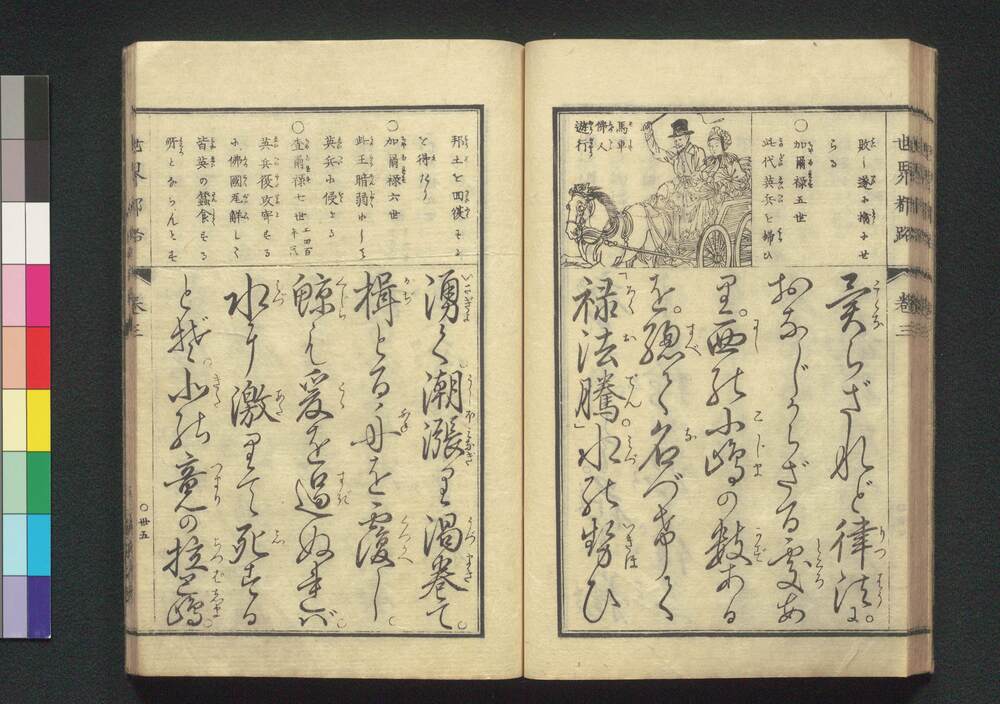 世界都路
巻三
敗し遂に擒にせ
らる
○加爾禄五世
此代英兵を婦ひ
馬車
佛人
遊行
異らざれど律法は。
おなじからざる處あ
り。西の小嶋の數ある
を。總て名づけて
「禄法騰」水の勢ひ
邦土を回復する
を得たり
○加爾禄六世
此王暗弱にして
英兵に侵さる
○査爾禄七世
英兵復攻寄する
に佛國瓦解して
皆英の蠶食する
所とならんとす
湧く潮漲り渦巻て。
楫とる舟を覆し。
鯨も爰を過ぬれば。
水に激りて死する
とぞ。北の竟の拉嶋。
世界都路
巻三
○卅五